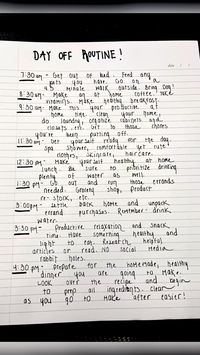 DAY OFF ROUTINE!
7:30 am - Get out of bed. Feed any
pets you have. Go on a
45 minute walk outside. Bring Dog!
8:30 am - Make an at home coffee. Take
vitamins. Make healthy breakfast.
9:30 am - Make this your productive at
home time. Clean your home,
do laundry, organize cabinets and
closets etc. Get to those chores
you've been putting off.
11:30 am - Get yourself ready for the day.
Spa shower, comfortable yet cute
clothes, skincare, haircare.
12:30 pm - Make yourself healthy at home
lunch. Be sure to prioritize drinking
plenty of water as well.
1:30 pm - Go out and run those errands
needed. Grocery shop, product
re-stock, etc.
3:00 pm - Settle back home and unpack
errand purchases. Remember-drink
water.
3:30 pm - Productive relaxation and snack
time. Have something healthy and
light to eat. Research helpful
articles or read. NO social media
rabbit holes.
4:30 pm - prepare for the homemade, healthy
dinner you are going to make.
Look over the recipe and begin
to prep all ingredients. Clean
as you go to make after easier!